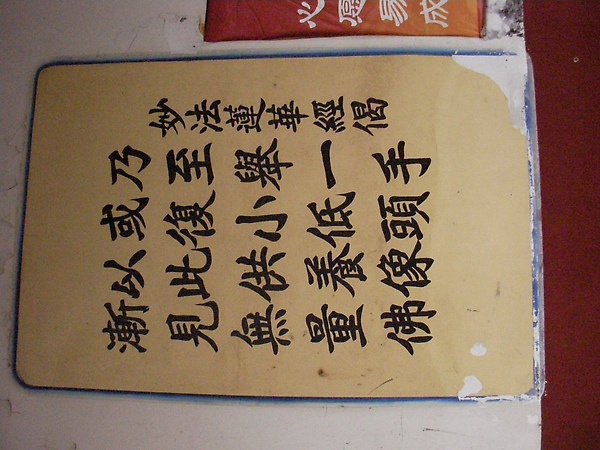 心愿易成
妙法蓮華經偈
乃至舉一手
或復小低頭
以此供養像
漸見無量佛